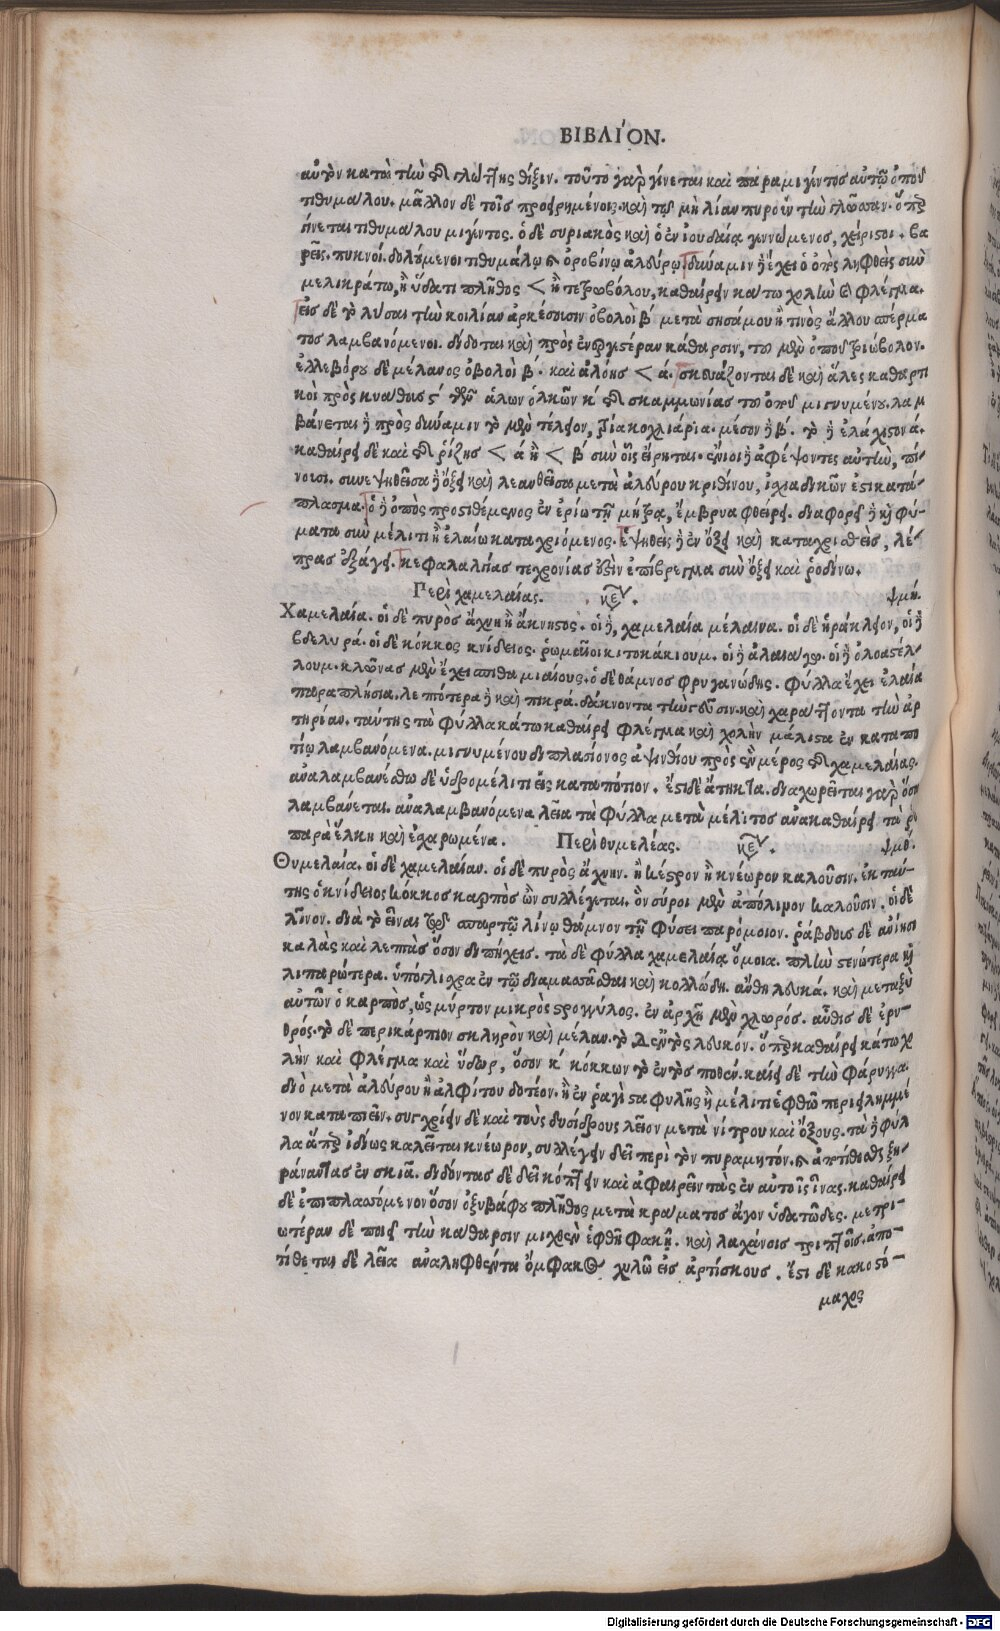 ΒΙΒΛΙ´ΟΝ.
αὐτὸν κατὰ τὴν τῆς γλώττης θίξιν. τοῦτο γὰρ γίνεται καὶ παραμιγέντος αὐτῷ ὀποῦ
τιθυμάλου. μᾶλλον δὲ τοῖς προειρημένοις καὶ τῷ μὴ λίαν πυροῦν τὴν γλῶσσαν. ὅπερ
γίνεται τιθυμάλου μιγέντος. ὁ δὲ συριακὸς καὶ ὁ ἐν ἰουδαίᾳ γεννώμενος, χείριστοι. βα
ρεῖς. πυκνοί. δολούμενοι τιθυμάλῳ καὶ ὀροβίνῳ ἀλεύρῳ. δύναμιν δὲ ἔχει ὁ ὀπὸς ληφθεὶς σὺν
μελικράτῳ, ἢ ὕδατι πλῆθος < ἢ τετρωβόλου, καθαίρειν κάτω χολὴν καὶ φλέγμα.
εἰς δὲ τὸ λῦσαι τὴν κοιλίαν ἀρκέσουσιν ὀβολοὶ β´ μετὰ σησάμου ἤ τινος ἄλλου σπέρμα
τος λαμβανόμενοι. δίδοται καὶ πρὸς ἐνεργεστέραν κάθαρσιν, τοῦ μὲν ὀποῦ τριώβολον.
ἐλλεβόρου δὲ μέλανος ὀβολοὶ β´. καὶ ἀλόης < ά. σκευάζονται δὲ καὶ ἅλες καθαρτι
κοὶ πρὸς κυάθους ϛ´ τῶν ἁλῶν ὁλκῶν κ´ τῆς σκαμμωνίας τοῦ ὀποῦ μιγνυμένου. λαμ
βάνεται δὲ πρὸς δύναμιν τὸ μὲν τέλειον, τρία κοχλιάρια. μέσον δὲ β´. τὸ δὲ ἐλάχιστον ά.
καθαίρει δὲ καὶ τῆς ῥίζης < ά ἢ < β´ σὺν οἷς εἴρηται. ἔνιοι δὲ ἀφέψοντες αὐτὴν, πί-
νουσι. συνεψηθεῖσα δὲ ὄξει καὶ λεανθεῖσα μετὰ ἀλεύρου κριθίνου, ἰσχιαδικῶν ἐστὶ κατά-
πλασμα. ὁ δὲ ὀπὸς προστιθέμενος ἐν ἐρίῳ τῇ μήτρᾳ, ἔμβρυα φθείρει. διαφορεῖ δὲ καὶ φύ-
ματα σὺν μέλιτι ἢ ἐλαίῳ καταχριόμενος. ἑψηθεὶς δὲ ἐν ὄξει καὶ καταχρισθεὶς, λέ-
πρας ἐξάγει. κεφαλαλγίας τε χρονίας ἐστὶν ἐπίβρεγμα σὺν ὄξει καὶ ῥοδίνῳ.
Περὶ χαμελαίας. κεν. ψμή.
Χαμελαία. οἱ δὲ πυρὸς ἄχνη ἢ ἄκνηστος. οἱ δὲ, χαμελαία μέλαινα. οἱ δὲ ἡράκλειον, οἱ δὲ
βδελυρά. οἱ δὲ κόκκος κνίδειος. ῥωμαῖοι κιτοκάκιουμ. οἱ δὲ ἀλαιαγω. οἱ δὲ ὀλοαστέλ-
λουμ. κλῶνας μὲν ἔχει σπιθαμιαίους. ὁ δὲ θάμνος φρυγανώδης. φύλλα ἔχει ἐλαίᾳ
παραπλήσια. λεπτότερα δὲ καὶ πικρά. δάκνοντα τὴν γεῦσιν. καὶ χαράττοντα τὴν ἀρ
τηρίαν. ταύτης τὰ φύλλα κάτω καθαίρει φλέγμα καὶ χολὴν μάλιστα ἐν καταπο
τίῳ λαμβανόμενα. μιγνυμένου διπλασίονος ἀψινθίου πρὸς ἓν μέρος τῆς χαμελαίας.
ἀναλαμβανέσθω δὲ ὑδρομέλιτι εἰς καταπότιον. ἔστι δὲ ἄτηκτα. διαχωρεῖται γὰρ ὅσα
λαμβάνεται. ἀναλαμβανόμενα λεῖα τὰ φύλλα μετὰ μέλιτος ἀνακαθαίρει τὰ ῥυ
παρὰ ἕλκη καὶ ἐσχαρωμένα. Περὶ θυμελέας. κεν. ψμθ´.
Θυμελαία. οἱ δὲ χαμελαίαν. οἱ δὲ πυρὸς ἄχνην. ἢ κέστρον ἢ κνέωρον καλοῦσιν. ἐκ ταύ-
της ὁ κνίδειος κόκκος καρπὸς ὢν συλλέγεται. ὃν σύροι μὲν ἀπόλινον καλοῦσιν. οἱ δὲ
λῖνον. διὰ τὸ εἶναι τῷ σπαρτῷ λίνῳ θάμνον τῇ φύσει παρόμοιον. ῥάβδους δὲ ἀνίησι
καλὰς καὶ λεπτὰς ὅσον διπήχεις. τὰ δὲ φύλλα χαμελαίᾳ ὅμοια. πλὴν στενώτερα καὶ
λιπαρώτερα. ὑπόγλισχρα ἐν τῷ διαμασᾶσθαι καὶ κολλώδη. ἄνθη λευκά. καὶ μεταξὺ
αὐτῶν ὁ καρπὸς, ὡς μύρτον μικρὸς στρογγύλος. ἐν ἀρχῇ μὲν χλωρός. αὖθις δὲ ἐρυ-
θρός. τὸ δὲ περικάρπιον σκληρὸν καὶ μέλαν. τὸ δ' ἐντὸς λευκόν. ὅπερ καθαίρει κάτω χο
λὴν καὶ φλέγμα καὶ ὕδωρ, ὅσον κ´ κόκκων τὸ ἐντὸς ποθέν. καίει δὲ τὴν φάρυγγα.
διὸ μετὰ ἀλεύρου ἢ ἀλφίτου δοτέον. ἢ ἐν ῥαγὶ σταφυλῆς ἢ μέλιτι ἑφθῷ περιειλημμέ
νον καταπιεῖν. συγχρίειν δὲ καὶ τοὺς δυσίδρους λεῖον μετὰ νίτρου καὶ ὄξους. τὰ δὲ φύλ
λα ἅπερ ἰδίως καλεῖται κνέωρον, συλλέγειν δεῖ περὶ τὸν πυραμητόν. καὶ ἀποτίθεσθαι ξη-
ράναντας ἐν σκιᾷ. διδόντας δὲ δεῖ κόπτειν καὶ ἀφαιρεῖν τὰς ἐν αὐτοῖς ἶνας. καθαίρει
δὲ ἐπιπλασσόμενον ὅσον ὀξυβάφου πλῆθος μετὰ κράματος ἄγον ὑδατῶδες. μετρι-
ωτέραν δὲ ποιεῖ τὴν κάθαρσιν μιχθὲν ἑφθῇ φακῇ. καὶ λαχάνοις τριπτοῖς. ἀπο-
τίθεται δὲ λεῖα ἀναληφθέντα ὄμφακος χυλῷ εἰς ἀρτίσκους. ἔστι δὲ κακοστό-
μαχος
Digitalisierung gefördert durch die Deutsche Forschungsgemeinschaft - DFG